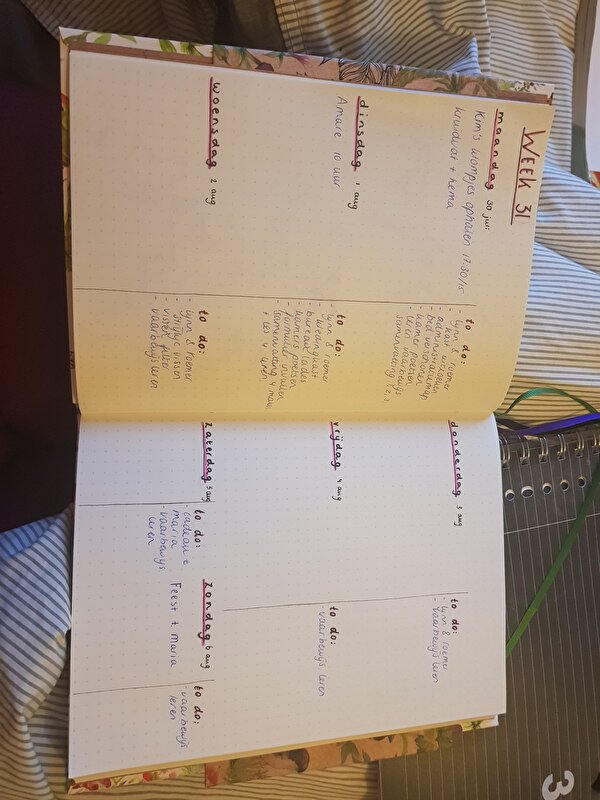 WEEK 31
maandag 30 jul:
Kim's wompjes ophalen 17:30/15
kruidvat + hema
to do:
- Lynn & roemer
- administratie
- bed verschonen
- kamer poetsen
- leren vaarbewijs
- samenvatting 1,2,3
dinsdag 1 aug
Amare 10 uur
to do:
- Lynn & roemer
- bureau lades
- kamer poetsen
- formulier invullen
- samenvatting 4 maken
+ les 4 leren
woensdag 2 aug
to do:
- Lynn & roemer
- vissen
- vissen filter
- vaarbewijs leren
donderdag 3 aug
to do:
- Lynn & roemer
- vaarbewijs leren
vrijdag 4 aug
to do:
- vaarbewijs leren
zaterdag 5 aug
to do:
- cadeau t
maria
- vaarbewijs
leren
zondag 6 aug
Feest t maria
to do:
- vaarbewijs
leren
3